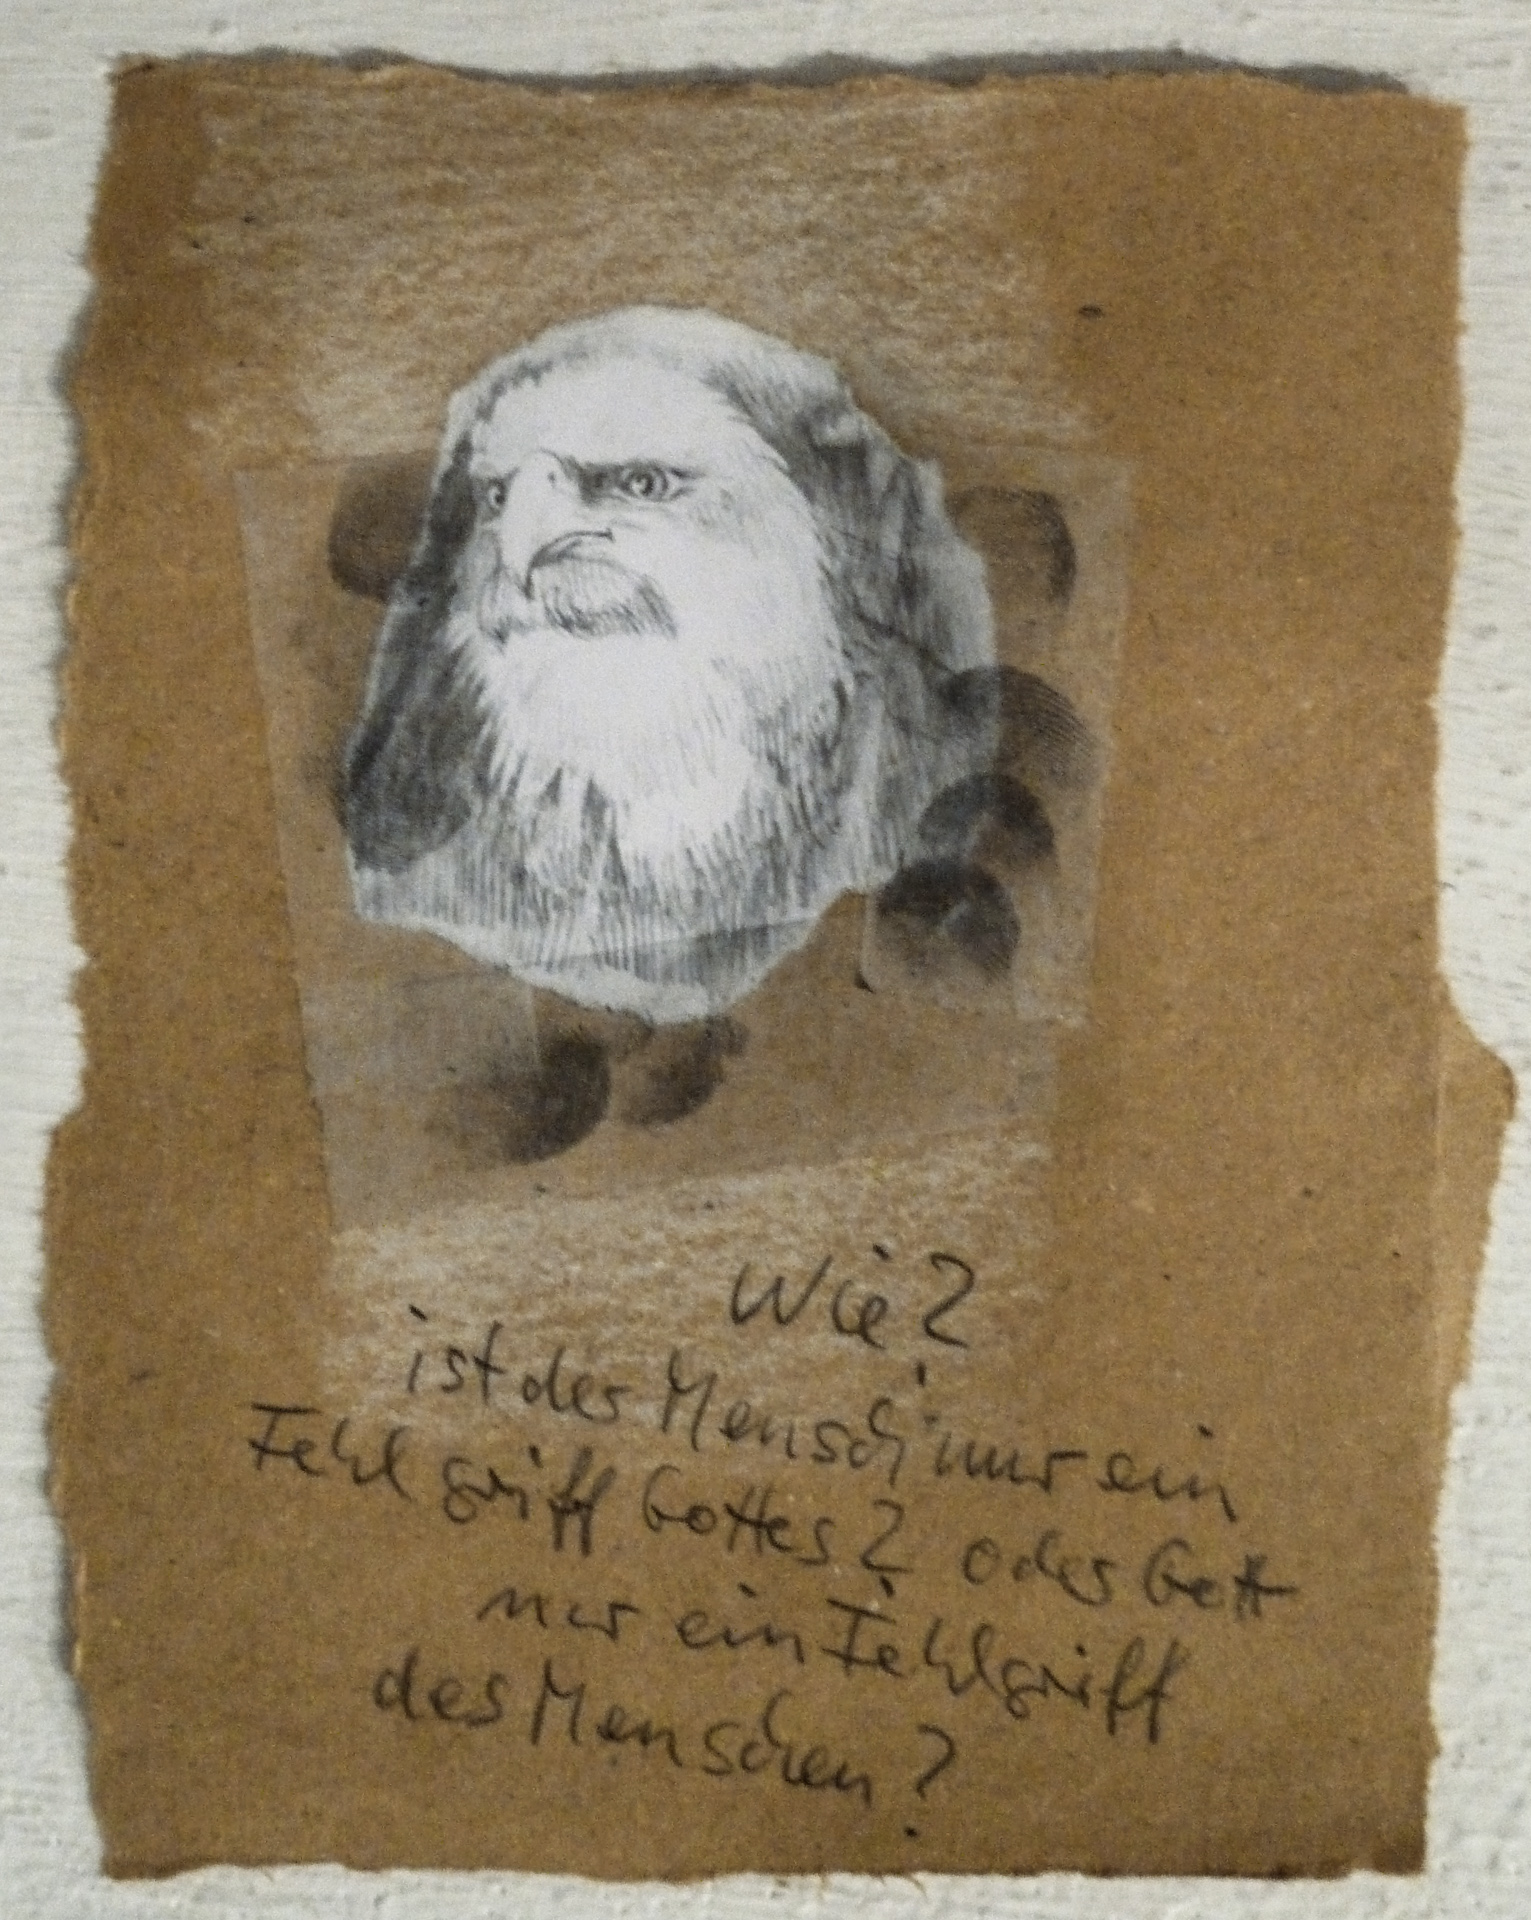 Wie?
ist der Mensch nur ein
Fehlgriff Gottes? oder Gott
nur ein Fehlgriff
des Menschen?